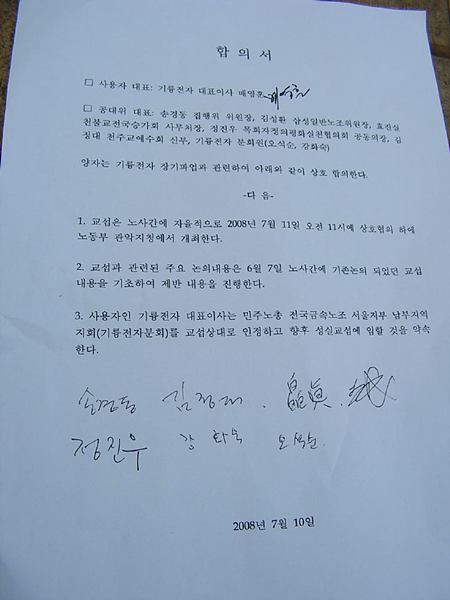 합 의 서
□ 사용자 대표: 기륭전자 대표이사 배영훈
□ 공대위 대표: 송경동 집행위 위원장, 김성환 삼성일반노조위원장, 효진실
천불교전국승가회 사무처장, 정진우 목회자정의평화실천협의회 공동의장, 김
정대 천주교예수회 신부, 기륭전자 분회원(오석순, 강화숙)
양자는 기륭전자 장기파업과 관련하여 아래와 같이 상호 합의한다.
-다 음-
1. 교섭은 노사간에 자율적으로 2008년 7월 11일 오전 11시에 상호협의 하에
노동부 관악지청에서 개최한다.
2. 교섭과 관련된 주요 논의내용은 6월 7일 노사간에 기존논의 되었던 교섭
내용을 기초하여 제반 내용을 진행한다.
3. 사용자인 기륭전자 대표이사는 민주노총 전국금속노조 서울지부 남부지역
지회(기륭전자분회)를 교섭상대로 인정하고 향후 성실교섭에 임할 것을 약속
한다.
송경동 김정대
정진우 강화숙 오석순
2008년 7월 10일